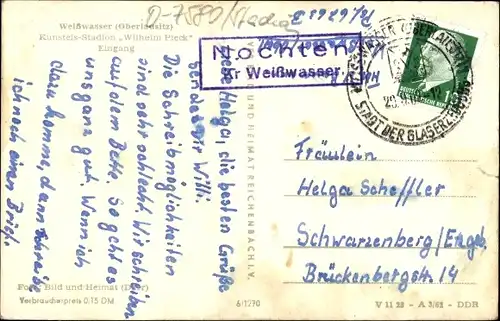 D-7580/Stadion
Weißwasser (Oberlausitz)
Kunsteis-Stadion „Wilhelm Pieck"
Eingang
Nochten
ür Weißwasser
WEISSWASSER (OBERLAUSITZ)
STADT DER GLASERZEUGUNG
DEUTSCHE
Liebe Helga, die besten Grüße
sendet Dir Willi.
Die Schreibmöglichkeiten
sind sehr schlecht. Wir schreiben
auf dem Bette. So geht es
uns ganz gut. Wenn ich
dazu komme, dann schreibe
ich noch einen Brief.
BILD UND HEIMAT REICHENBACH I. V.
Fräulein
Helga Scheffler
Schwarzenberg/Erzgeb.
Brückenbergstr. 14
Foto: Bild und Heimat
Verbraucherpreis 0,15 DM
6/1270
V 11 28 - A 3/61 - DDR